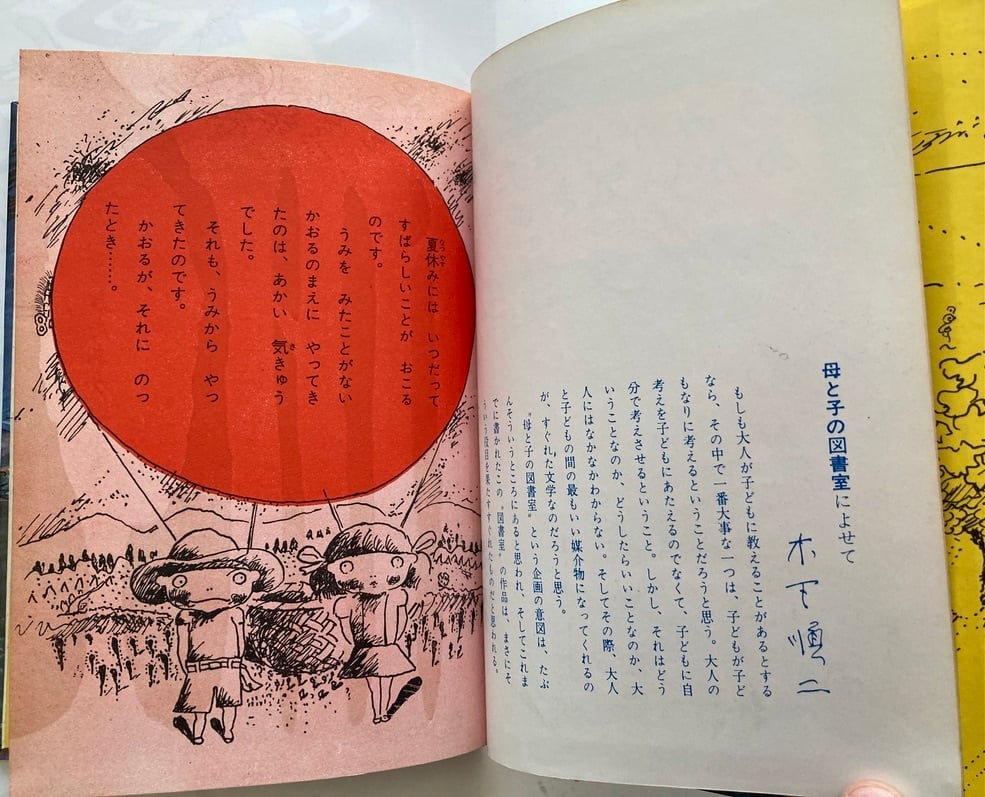 母と子の図書室によせて
木下順二
もしも大人が子どもに教えることがあるとする
なら、その中で一番大事な一つは、子どもが子ど
もなりに考えるということだろうと思う。大人の
考えを子どもにあたえるのでなくて、子どもに自
分で考えさせるということ。しかし、それはどう
いうことなのか、どうしたらいいことなのか、大
人にはなかなかわからない。そしてその際、大人
と子どもの間の最もいい媒介物になってくれるの
が、すぐれた文学なのだろうと思う。
〝母と子の図書室〟という企画の意図は、たぶ
んそういうところにあると思われ、そしてこれま
でに書かれたこの〝図書室〟の作品は、まさにそ
ういう役目を果たすすぐれたものだと思われる。
なつやす
夏休みには いつだって
すばらしいことが おこる
のです。
うみを みたことがない
かおるのまえに やってき
たのは、あかい 気きゅう
き
でした。
それも、うみから やっ
てきたのです。
かおるが、それに のっ
たとき……。